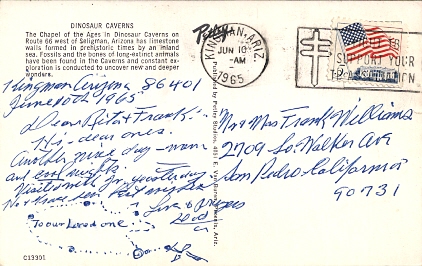 DINOSAUR CAVERNS
The Chapel of the Ages in Dinosaur Caverns on
Route 66 west of Seligman, Arizona has limestone
walls formed in prehistoric times by an inland
sea. Fossils and the bones of long-extinct animals
have been found in the Caverns and constant ex-
ploration is conducted to uncover new and deeper
wonders.
Petley
KINGMAN, ARIZ.
JUN 10
-AM
1965
SUPPORT YOUR
Kingman Arizona 86401
June 10th 1965
Dear Rita & Frank:-
Hi-dear ones.
Another nice day - warm
and cool nights.
Visited with yesterday
Love & prayers
To our loved one
Mr & Mrs Frank Williams
2709 So. Walker Av
San Pedro California
90731
C13301